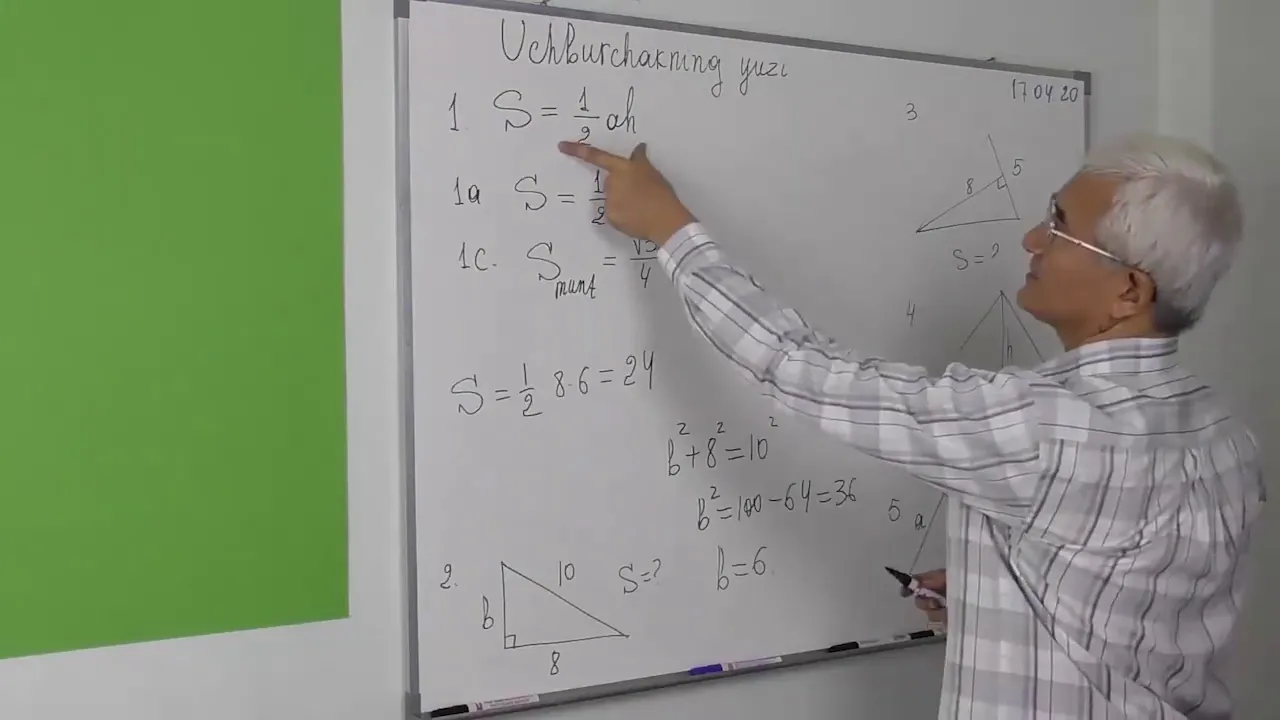 Uchburchakning yuzi
17.04.20
1. S = 1/2 ah
1a S = 1/2
1c. S munt = √3/4
S = 1/2 8·6 = 24
b² + 8² = 10²
b² = 100 − 64 = 36
b = 6
2.
10
S = ?
b
8
3
5
8
S = ?
4
h
5
a